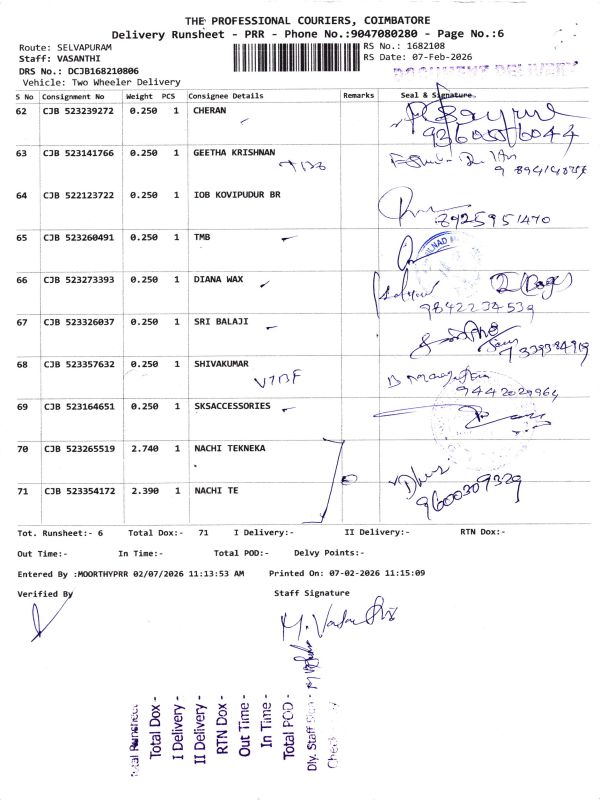 THE PROFESSIONAL COURIERS, COIMBATORE
Delivery Runsheet - PRR - Phone No.:9047080280 - Page No.:6
Route: SELVAPURAM
RS No.: 1682108
Staff: VASANTHI
RS Date: 07-Feb-2026
DRS No.: DCJB168210806
DOCUMENT DELIVERY
Vehicle: Two Wheeler Delivery
S No Consignment No Weight PCS Consignee Details Remarks Seal & Signature
62 CJB 523239272 0.250 1 CHERAN
63 CJB 523141766 0.250 1 GEETHA KRISHNAN
64 CJB 522123722 0.250 1 IOB KOVIPUDUR BR
8925951470
65 CJB 523260491 0.250 1 TMB
66 CJB 523273393 0.250 1 DIANA WAX
9842234539
67 CJB 523326037 0.250 1 SRI BALAJI
7339384919
68 CJB 523357632 0.250 1 SHIVAKUMAR
9442029964
69 CJB 523164651 0.250 1 SKSACCESSORIES
70 CJB 523265519 2.740 1 NACHI TEKNEKA
71 CJB 523354172 2.390 1 NACHI TE
9600309329
Tot. Runsheet:- 6 Total Dox:- 71 I Delivery:- II Delivery:- RTN Dox:-
Out Time:- In Time:- Total POD:- Delvy Points:-
Entered By :MOORTHYPRR 02/07/2026 11:13:53 AM Printed On: 07-02-2026 11:15:09
Verified By Staff Signature
M. Vasanthi
Total Runsheet
Total Dox -
I Delivery -
II Delivery -
RTN Dox -
Out Time -
In Time -
Total POD -
Dly. Staff Sign -